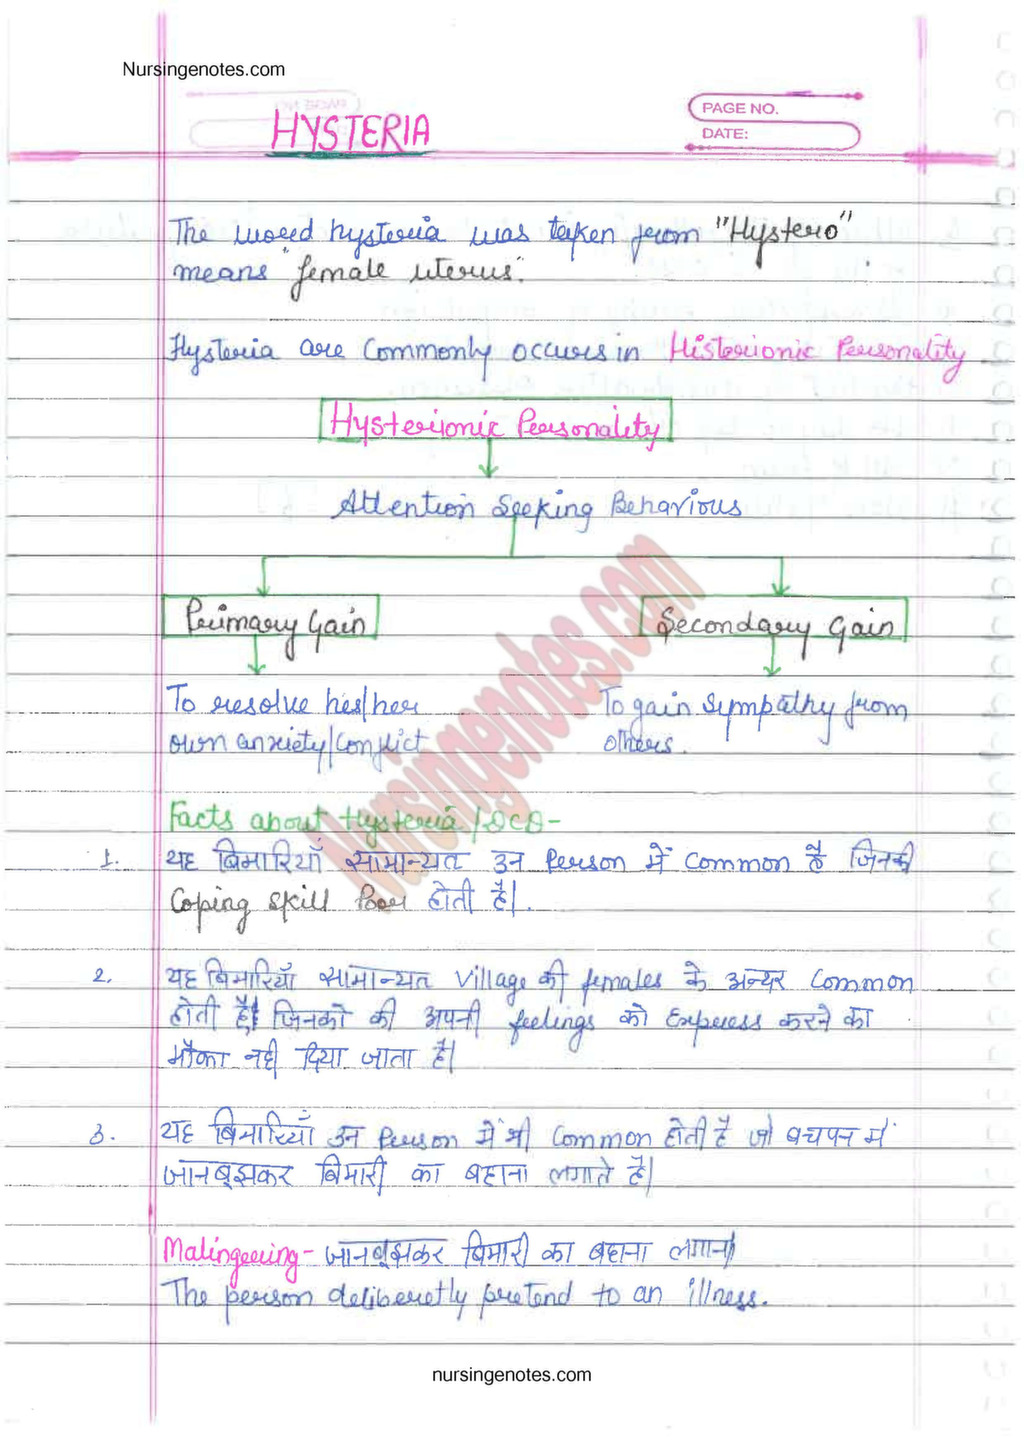 Nursingenotes.com
PAGE NO.
DATE:
HYSTERIA
The word hysteria was taken from "Hystero"
means "female uterus".
Hysteria are commonly occurs in Histerionic Personality.
Hysterionic Personality
Attention Seeking Behavious
Primary Gain
Secondary Gain
To resolve his/her
own anxiety/conflict
To gain sympathy from
others.
Facts about Hysteria/DCD-
1. यह बिमारियाँ सामान्यत उन Person में common है जिनकी
Coping skill Poor होती है।.
2. यह बिमारियाँ सामान्यत village की females के अन्दर common
होती है। जिनको की अपनी feelings को Express करने का
मौका नही दिया जाता है।
3. यह बिमारियाँ उन Person में भी common होती है जो बचपन में
जानबूझकर बिमारी का बहाना लगाते है।
Malingering - जानबूझकर बिमारी का बहाना लगाना।
The person deliberetly pretend to an illness.
Nursingenotes.com
nursingenotes.com